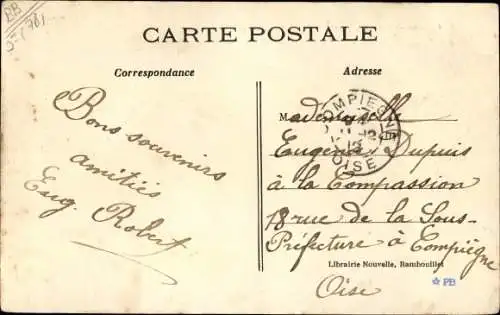 EB
CARTE POSTALE
Correspondance
Adresse
Bons souvenirs
amitiés
Eug. Robert
COMPIEGNE
OISE
M ademoiselle
Eugénie Dupuis
à la Compassion
18 rue de la Sous-
Préfecture à Compiègne
Librairie Nouvelle, Rambouillet
Oise
PB